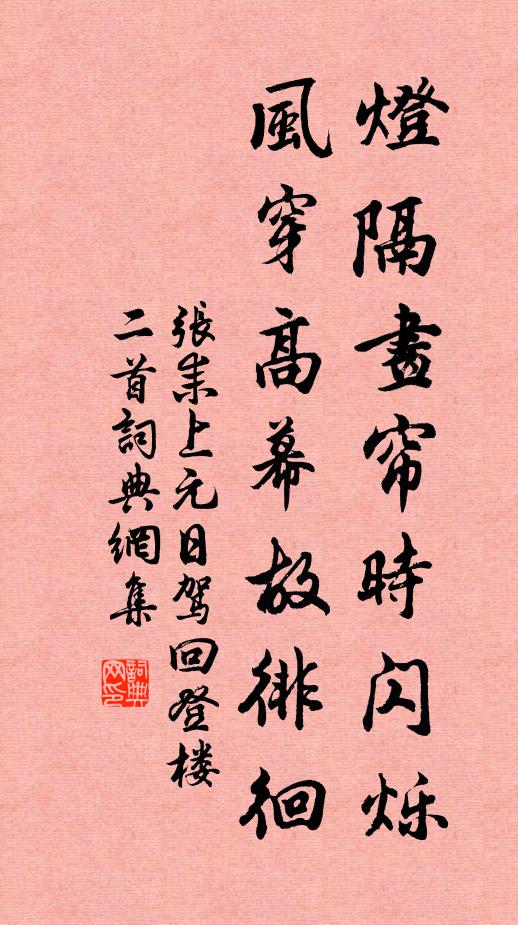 燈隔畫帘時闪烁
風穿高幕故徘徊
張耒上元日驾回登楼
二首詞典網集
詞典网印